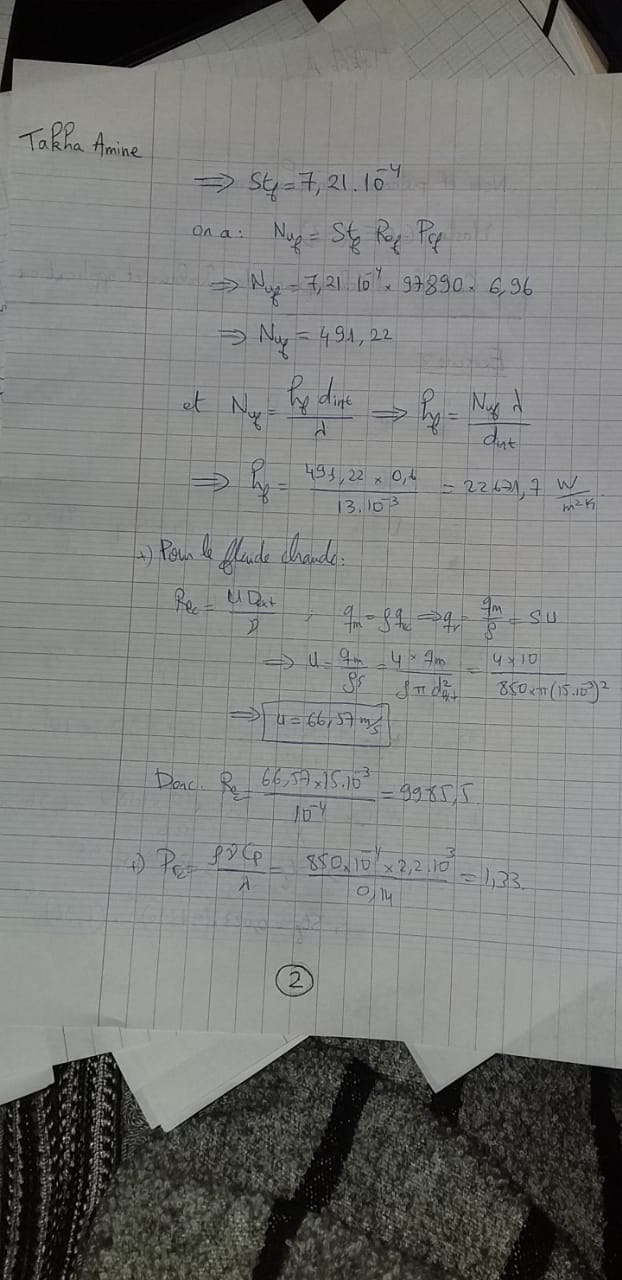 Takha Amine
⟹ St_f = 7,21.10^-4
on a: Nu_f = St_f Re_f Pr_f
⟹ Nu_f = 7,21 10^-4 × 97890 × 6,96
⟹ Nu_f = 491,22
et Nu_f = h_f d_int / λ ⟹ h_f = Nu_f λ / d_int
⟹ h_f = 491,22 × 0,6 / 13.10^-3 = 22671,7 W/m²K.
+) Pour le fluide chaude:
Re_c = u D_ext / ν ; q_m = ρ q_v ⟹ q_v = q_m / ρ = S u
⟹ u = q_m / ρS = 4 × q_m / ρ π d²_ext = 4 × 10 / 850 × π (15.10^-3)²
⟹ u = 66,57 m/s
Donc. Re_c = 66,57 × 15.10^-3 / 10^-4 = 9985,5
+) Pr_c = ρ ν Cp / λ = 850 × 10^-4 × 2,2.10^3 / 0,14 = 1,33.
2